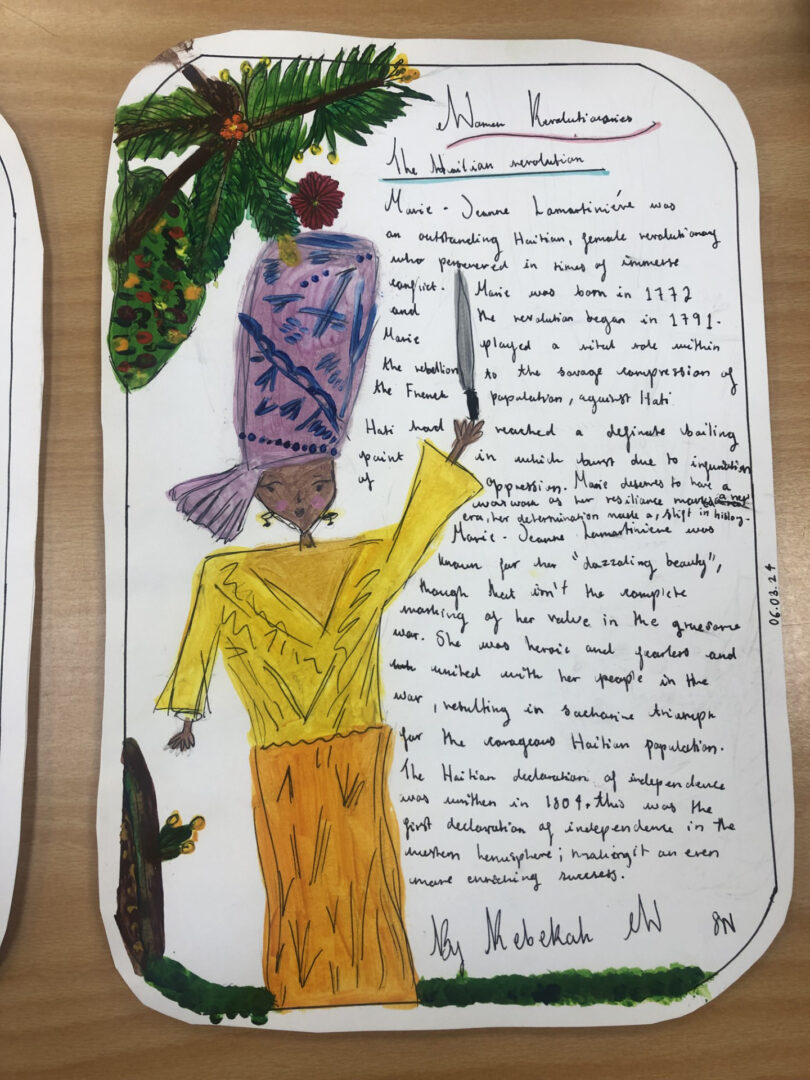 Women Revolutionaries
The Haitian revolution
Marie - Jeanne Lamartiniére was
an outstanding Haitian, female revolutionary
who persevered in times of immense
conflict. Marie was born in 1772
and the revolution began in 1791.
Marie played a vital role within
the rebellion to the savage compression of
the French population, against Hati
Hati had reached a definate boiling
point in which burst due to
of oppression. Marie deserves to have a
as her resilience marks a new
era, her determination made a shift in history.
Marie - Jeanne Lamartiniere was
known for her "dazzaling beauty",
though that isn't the complete
marking of her value in the gruesome
war. She was heroic and fearless and
united with her people in the
war, resulting in sacharine triumph
for the corageous Haitian population.
The Haitian declaration of independence
was written in 1804. this was the
first declaration of independence in the
western hemusphere; making it an even
more enriching success.
By Rebekah W 8N
06.03.24